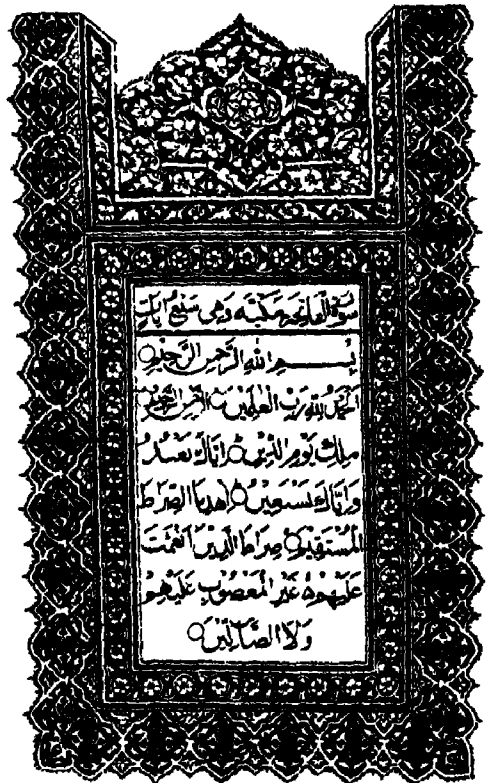 سورة الفاتحة مكية وهي سبع ايات
بسم الله الرحمن الرحيم
الحمد لله رب العلمين الرحمن الرحيم
ملك يوم الدين اياك نعبد
واياك نستعين اهدنا الصراط
المستقيم صراط الذين انعمت
عليهم غير المغضوب عليهم
ولا الضالين